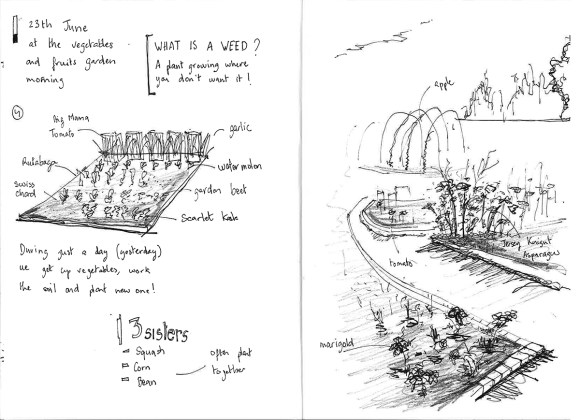 23th June
at the vegetables
and fruits garden
morning
WHAT IS A WEED?
A plant growing where
you don't want it!
Big Mama
Tomato
garlic
Rutabaga
watermelon
Swiss
chard
garden beet
Scarlet Kale
During just a day (yesterday)
we get up vegetables, work
the soil and plant new one!
3 sisters
Squash
Corn
Bean
often plant
together
apple
Jersey Knight
Asparagus
tomato
marigold